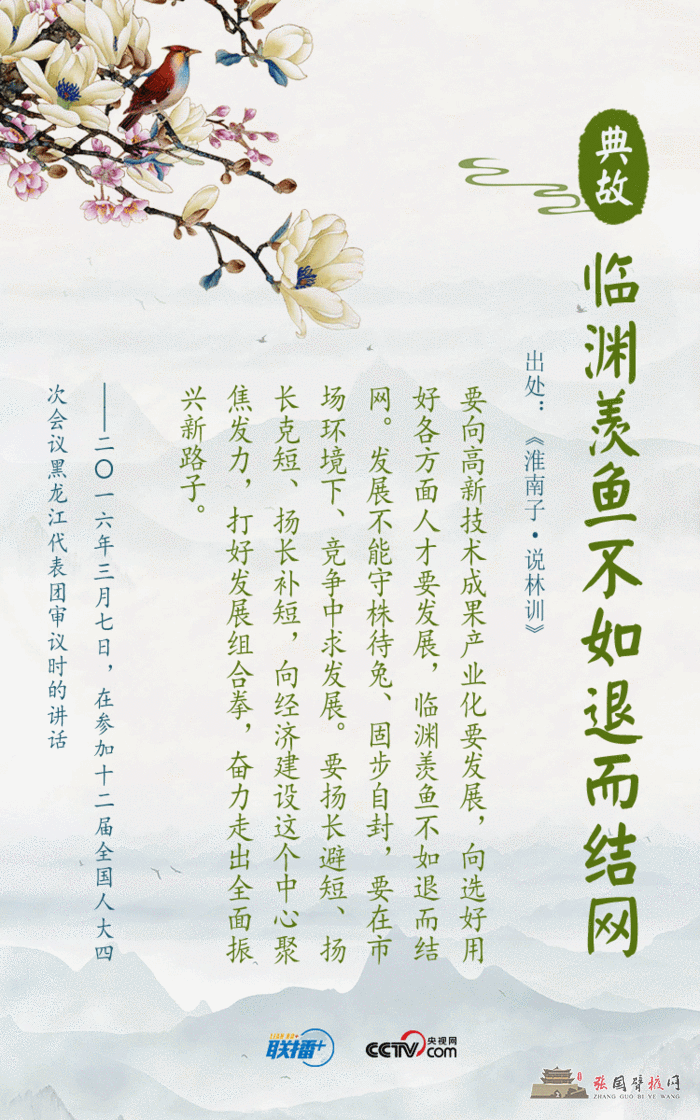 典故
临渊羡鱼不如退而结网
出处：《淮南子·说林训》
要向高新技术成果产业化要发展，向选好用
好各方面人才要发展，临渊羡鱼不如退而结
网。发展不能守株待兔、固步自封，要在市
场环境下、竞争中求发展。要扬长避短、扬
长克短、扬长补短，向经济建设这个中心聚
焦发力，打好发展组合拳，奋力走出全面振
兴新路子。
——二〇一六年三月七日，在参加十二届全国人大四
次会议黑龙江代表团审议时的讲话
LIAN BO+
联播+
CCTV 央视网
com
张国臂掖网
ZHANG GUO BI YE WANG